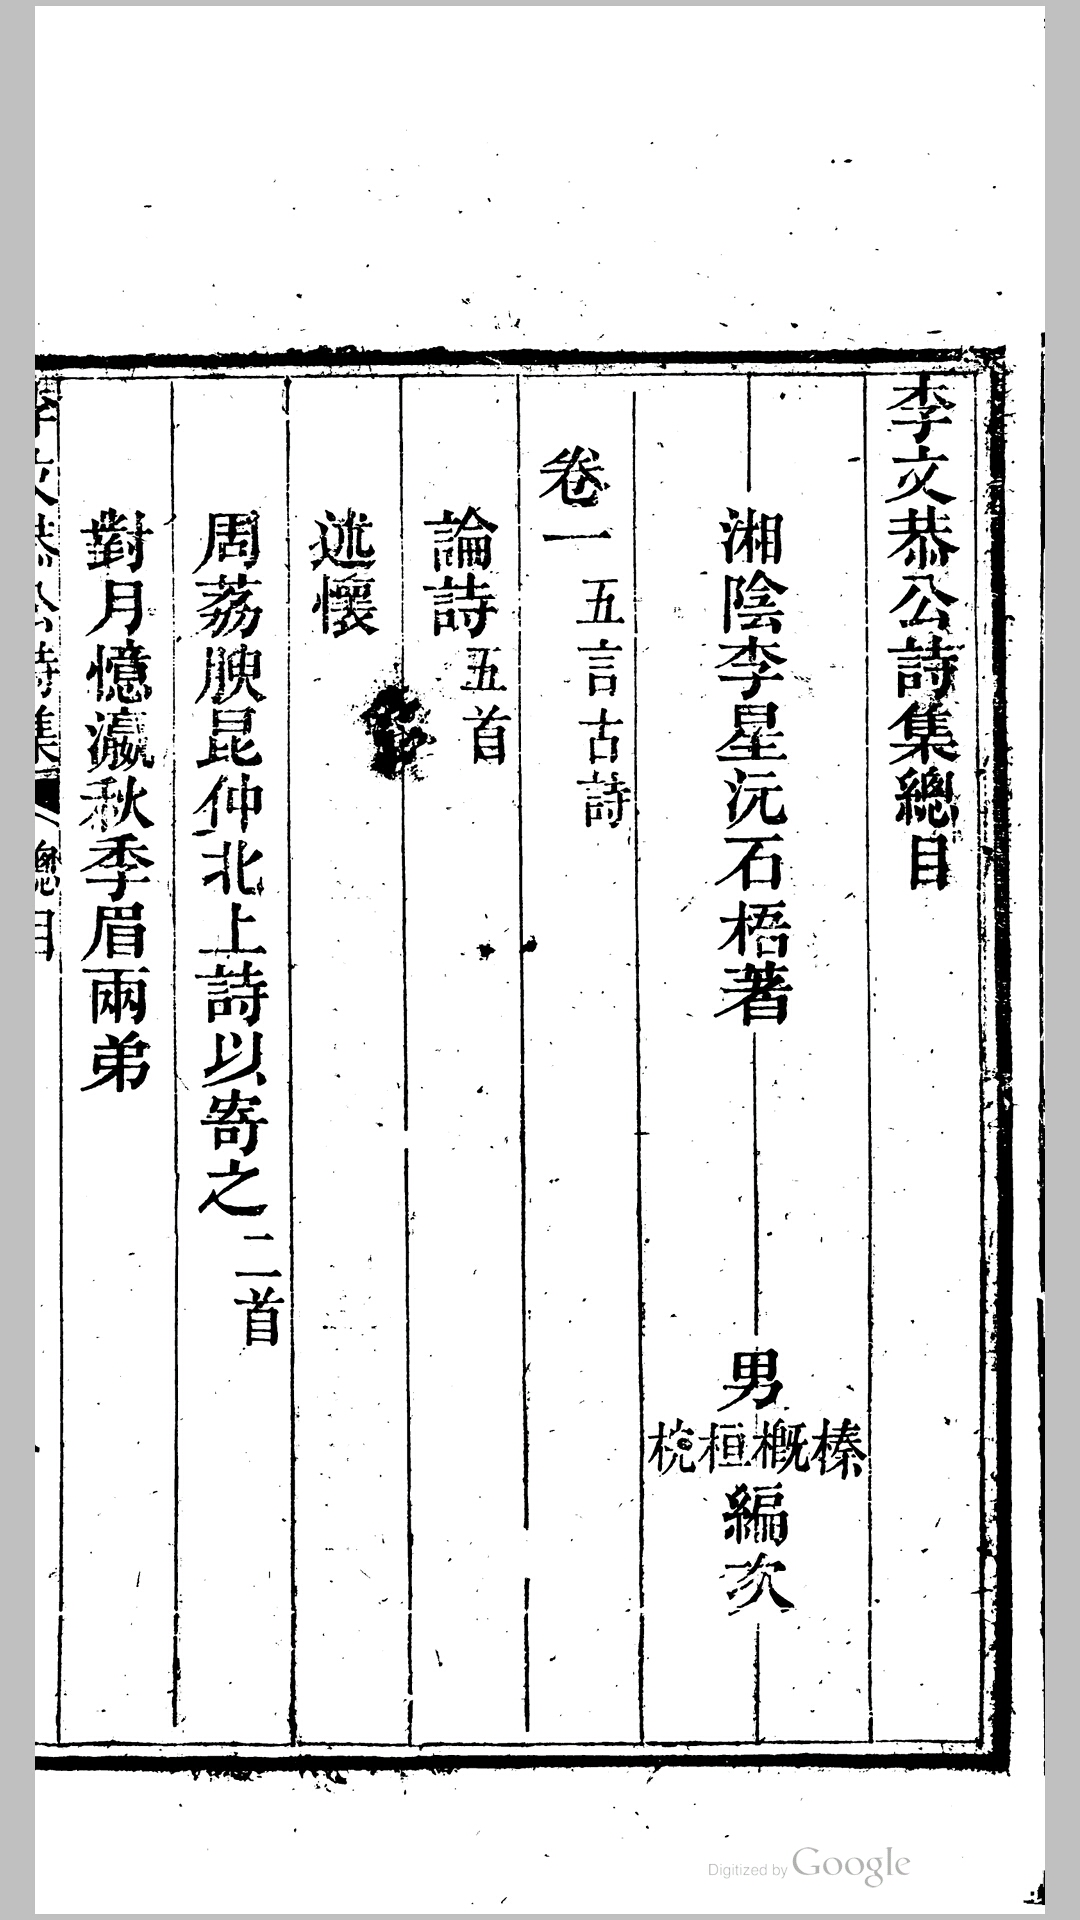 李文恭公詩集總目
湘陰李星沅石梧著 男榛概桓梡編次
卷一 五言古詩
論詩 五首
述懷
周荔腴昆仲北上詩以寄之 二首
對月憶瀛秋季眉兩弟
李文恭公詩集 總目
Digitized by Google